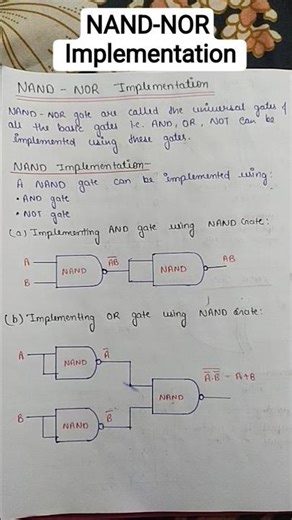 NAND-NOR
Implementation
NAND - NOR Implementation
NAND-NOR gate are called the universal gates &
all the basic gates i.e. AND, OR, NOT can be
implemented using these gates.
NAND Implementation-
A NAND gate can be implemented using:
• AND gate
• NOT gate
(a) Implementing AND gate using NAND Gate:
A
B
NAND
A̅B̅
NAND
AB
(b) Implementing OR gate using NAND Gate:
A
NAND
A̅
NAND
A̅.B̅ = A+B
B
NAND
B̅